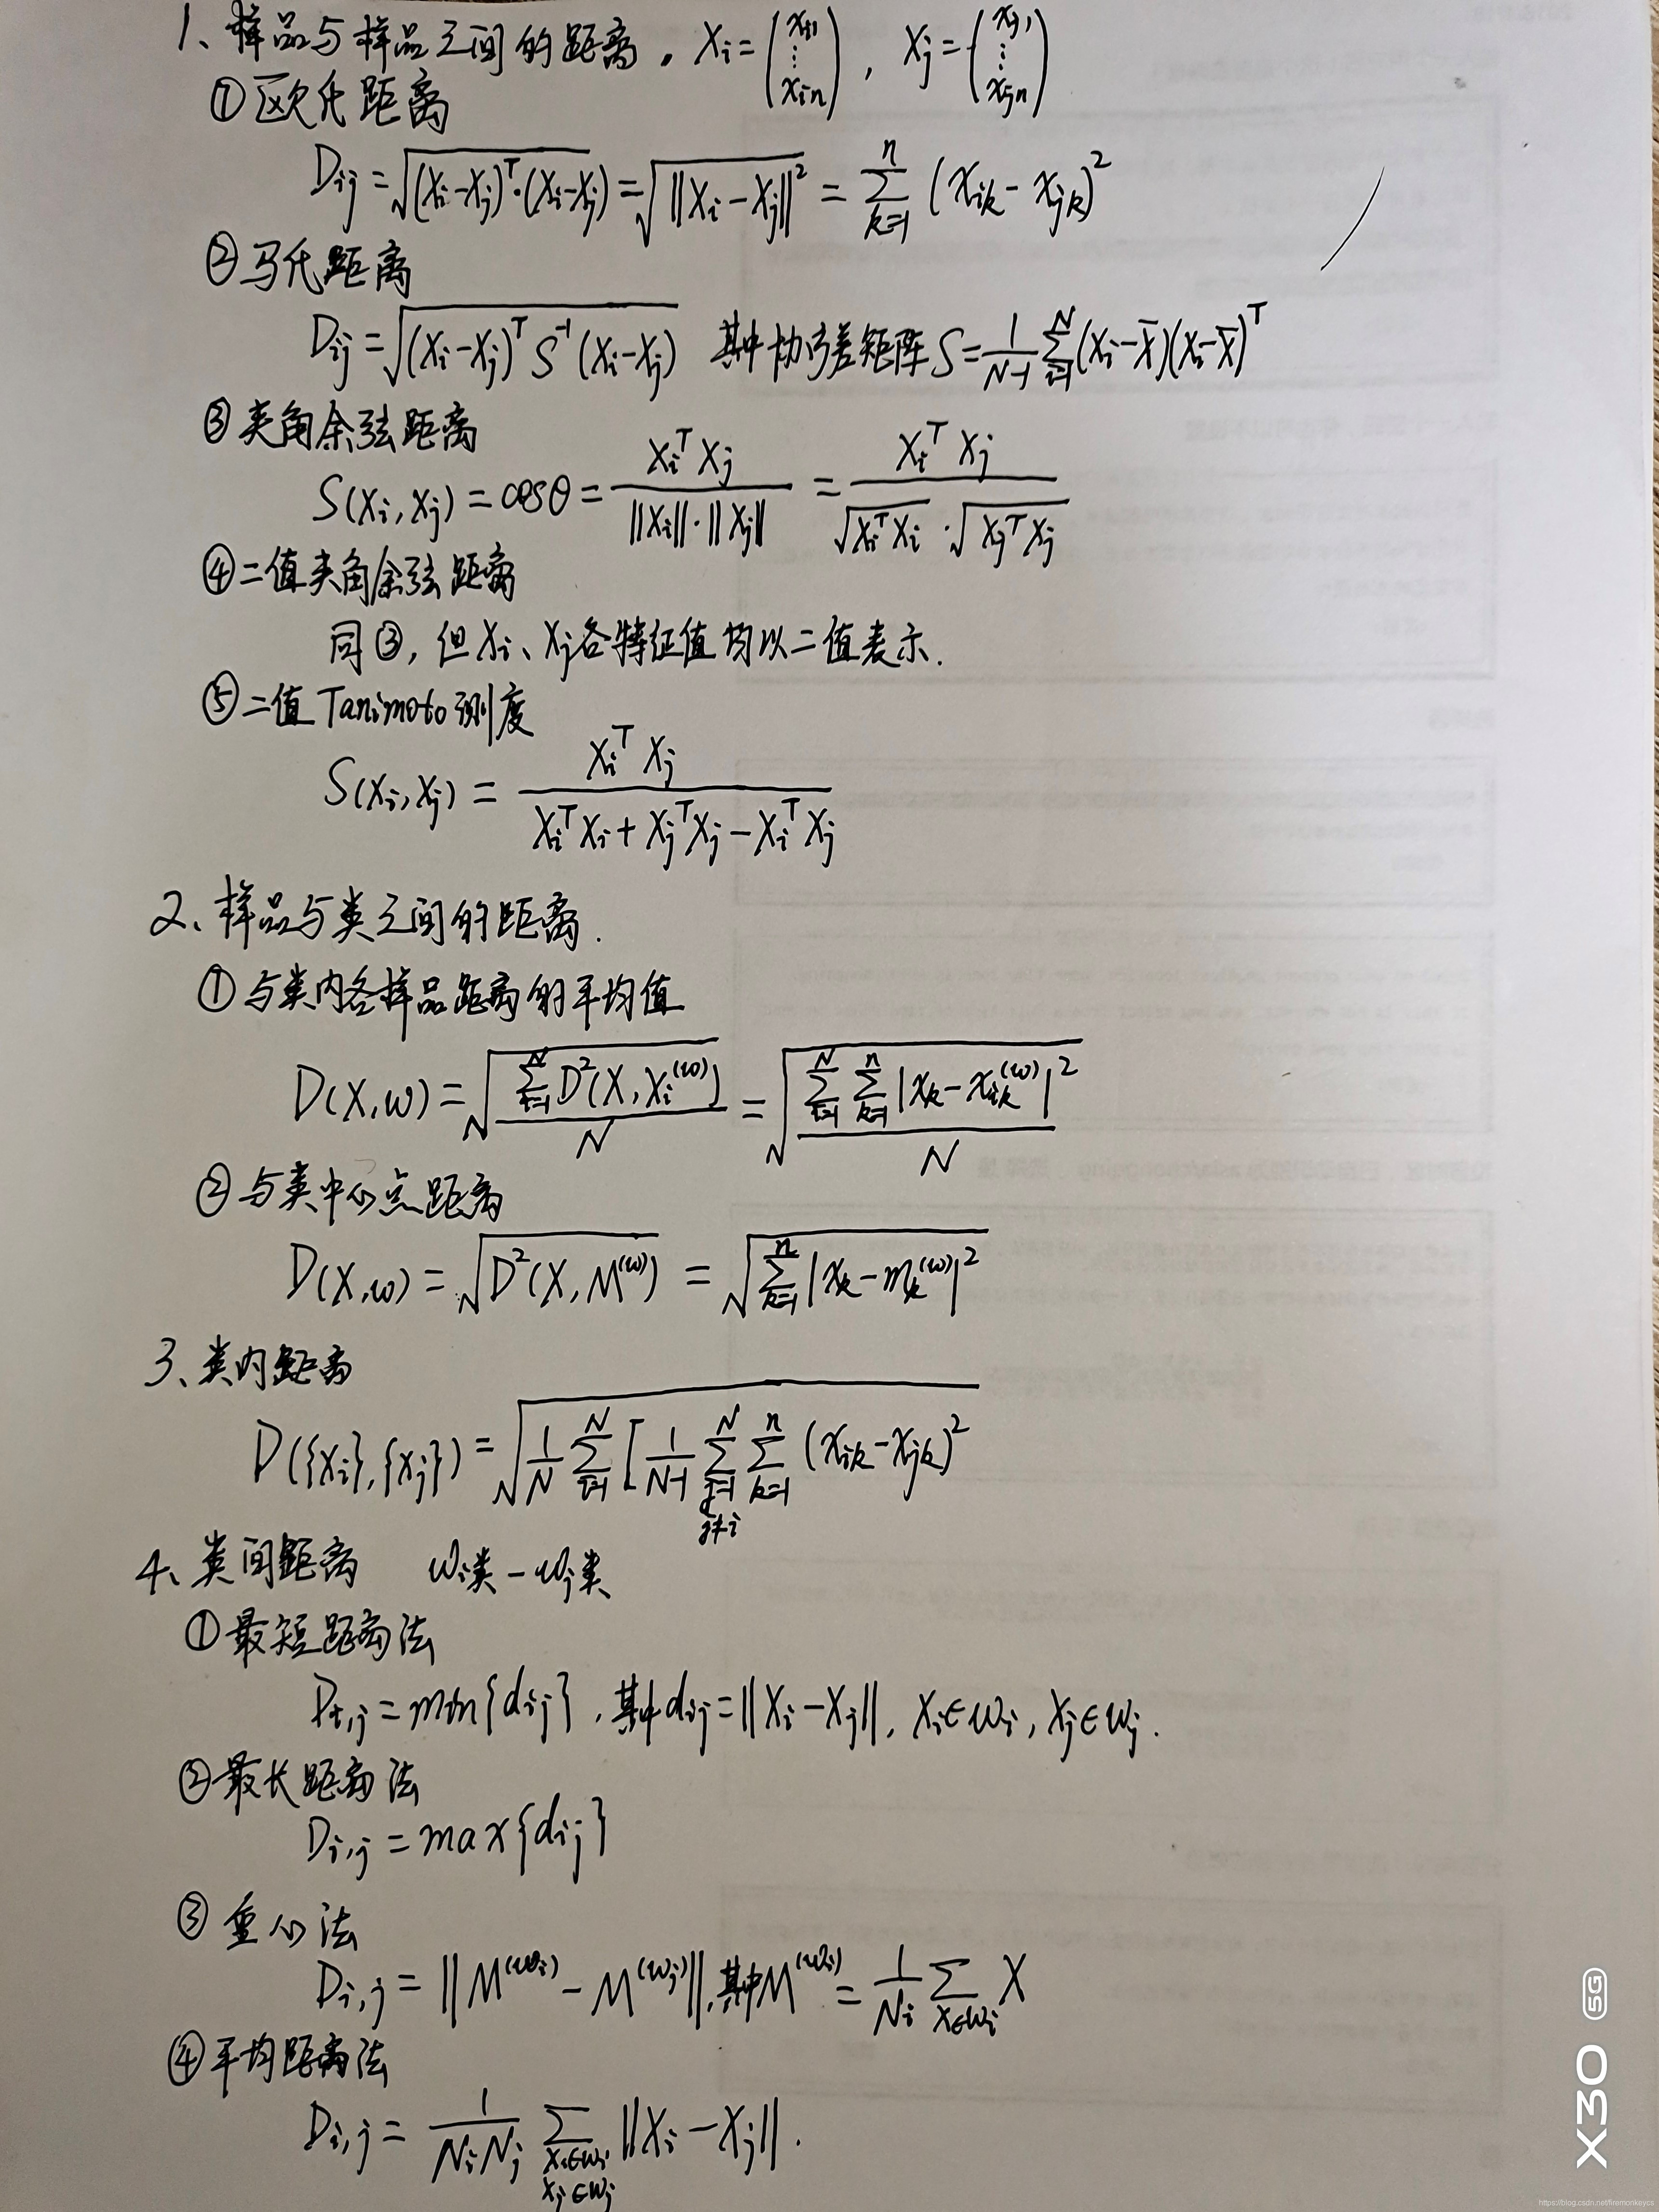 1、样品与样品之间的距离，X_i=(x_{i1} ⋮ x_{in})，X_j=(x_{j1} ⋮ x_{jn})
①欧氏距离
D_{ij}=√((X_i-X_j)^T·(X_i-X_j))=√(||X_i-X_j||^2)=∑_{k=1}^{n}(x_{ik}-x_{jk})^2
②马氏距离
D_{ij}=√((X_i-X_j)^T S^{-1}(X_i-X_j)) 其中协方差矩阵S=1/(N-1) ∑_{i=1}^{N}(X_i-X̄)(X_i-X̄)^T
③夹角余弦距离
S(X_i,X_j)=cosθ=X_i^T X_j/(||X_i||·||X_j||)=X_i^T X_j/(√(X_i^T X_i)·√(X_j^T X_j))
④二值夹角余弦距离
同③，但X_i、X_j各特征值均以二值表示.
⑤二值Tanimoto测度
S(X_i,X_j)=X_i^T X_j/(X_i^T X_i+X_j^T X_j-X_i^T X_j)
2、样品与类之间的距离.
①与类内各样品距离的平均值
D(X,ω)=√(∑_{i=1}^{N}D^2(X,X_i^{(ω)})/N)=√(∑_{i=1}^{N}∑_{k=1}^{n}|x_k-x_{ik}^{(ω)}|^2/N)
②与类中心点距离
D(X,ω)=√(D^2(X,M^{(ω)}))=√(∑_{k=1}^{n}|x_k-m_k^{(ω)}|^2)
3、类内距离
D({X_i},{X_j})=√(1/N ∑_{i=1}^{N}[1/(N-1) ∑_{j=1 j≠i}^{N}∑_{k=1}^{n}(x_{ik}-x_{jk})^2
4、类间距离 ω_i类-ω_j类
①最短距离法
D_{i,j}=min{d_{ij}}，其中d_{ij}=||X_i-X_j||，X_i∈ω_i，X_j∈ω_j.
②最长距离法
D_{i,j}=max{d_{ij}}
③重心法
D_{i,j}=||M^{(ω_i)}-M^{(ω_j)}||，其中M^{(ω_i)}=1/N_i ∑_{X∈ω_i} X
④平均距离法
D_{i,j}=1/(N_i N_j) ∑_{X_i∈ω_i X_j∈ω_j}||X_i-X_j||.
X30 5G
https://blog.csdn.net/firemonkeycs